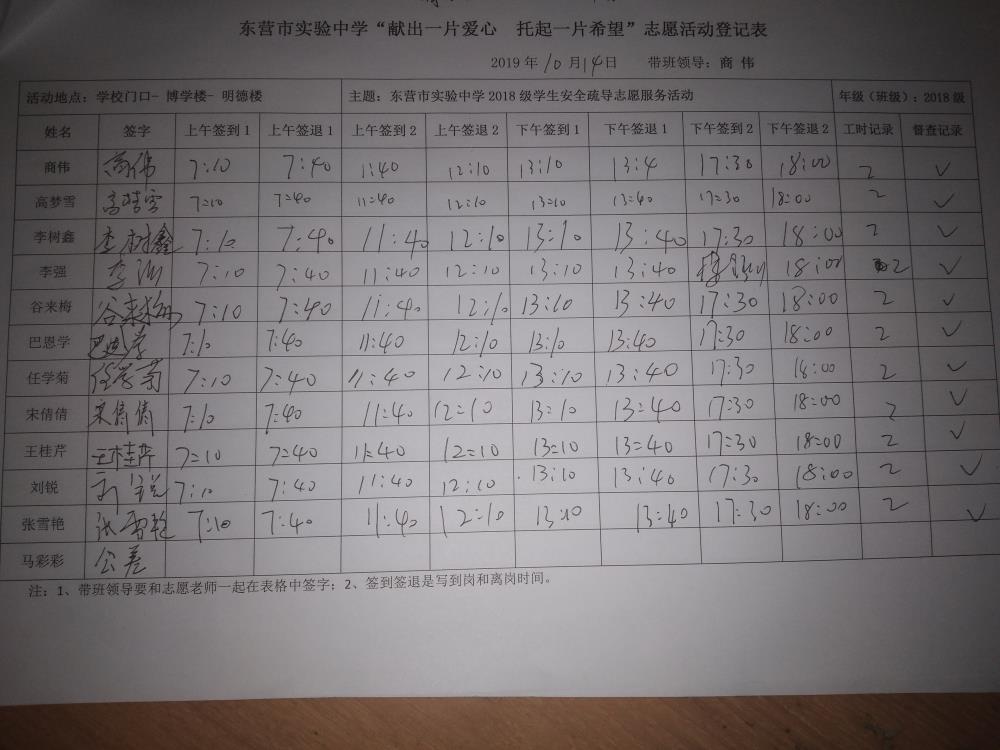 东营市实验中学“献出一片爱心 托起一片希望”志愿活动登记表
2019年10月14日 带班领导：商 伟
活动地点：学校门口- 博学楼- 明德楼 主题：东营市实验中学2018级学生安全疏导志愿服务活动 年级（班级）：2018级
姓名 签字 上午签到1 上午签退1 上午签到2 上午签退2 下午签到1 下午签退1 下午签到2 下午签退2 工时记录 督查记录
商伟 商伟 7:10 7:40 11:40 12:10 13:10 13:4 17:30 18:00 2 ✓
高梦雪 高梦雪 7:10 7:40 11:40 12:10 13:10 13:40 17:30 18:00 2 ✓
李树鑫 李树鑫 7:10 7:40 11:40 12:10 13:10 13:40 17:30 18:00 2 ✓
李强 李强 7:10 7:40 11:40 12:10 13:10 13:40 18:00 2 ✓
谷来梅 谷来梅 7:10 7:40 11:40 12:10 13:10 13:40 17:30 18:00 2 ✓
巴恩学 巴恩学 7:10 7:40 11:40 12:10 13:10 13:40 17:30 18:00 2 ✓
任学菊 任学菊 7:10 7:40 11:40 12:10 13:10 13:40 17:30 18:00 2 ✓
宋倩倩 宋倩倩 7:10 7:40 11:40 12=10 13=10 13=40 17:30 18=00 2 ✓
王桂芹 王桂芹 7=10 7=40 11=40 12=10 13=10 13=40 17=30 18=00 2 ✓
刘锐 刘锐 7:10 7:40 11:40 12:10 13:10 13:40 17:30 18:00 2 ✓
张雪艳 张雪艳 7:10 7:40 11:40 12:10 13:10 13:40 17:30 18:00 2 ✓
马彩彩 公差
注：1、带班领导要和志愿老师一起在表格中签字；2、签到签退是写到岗和离岗时间。